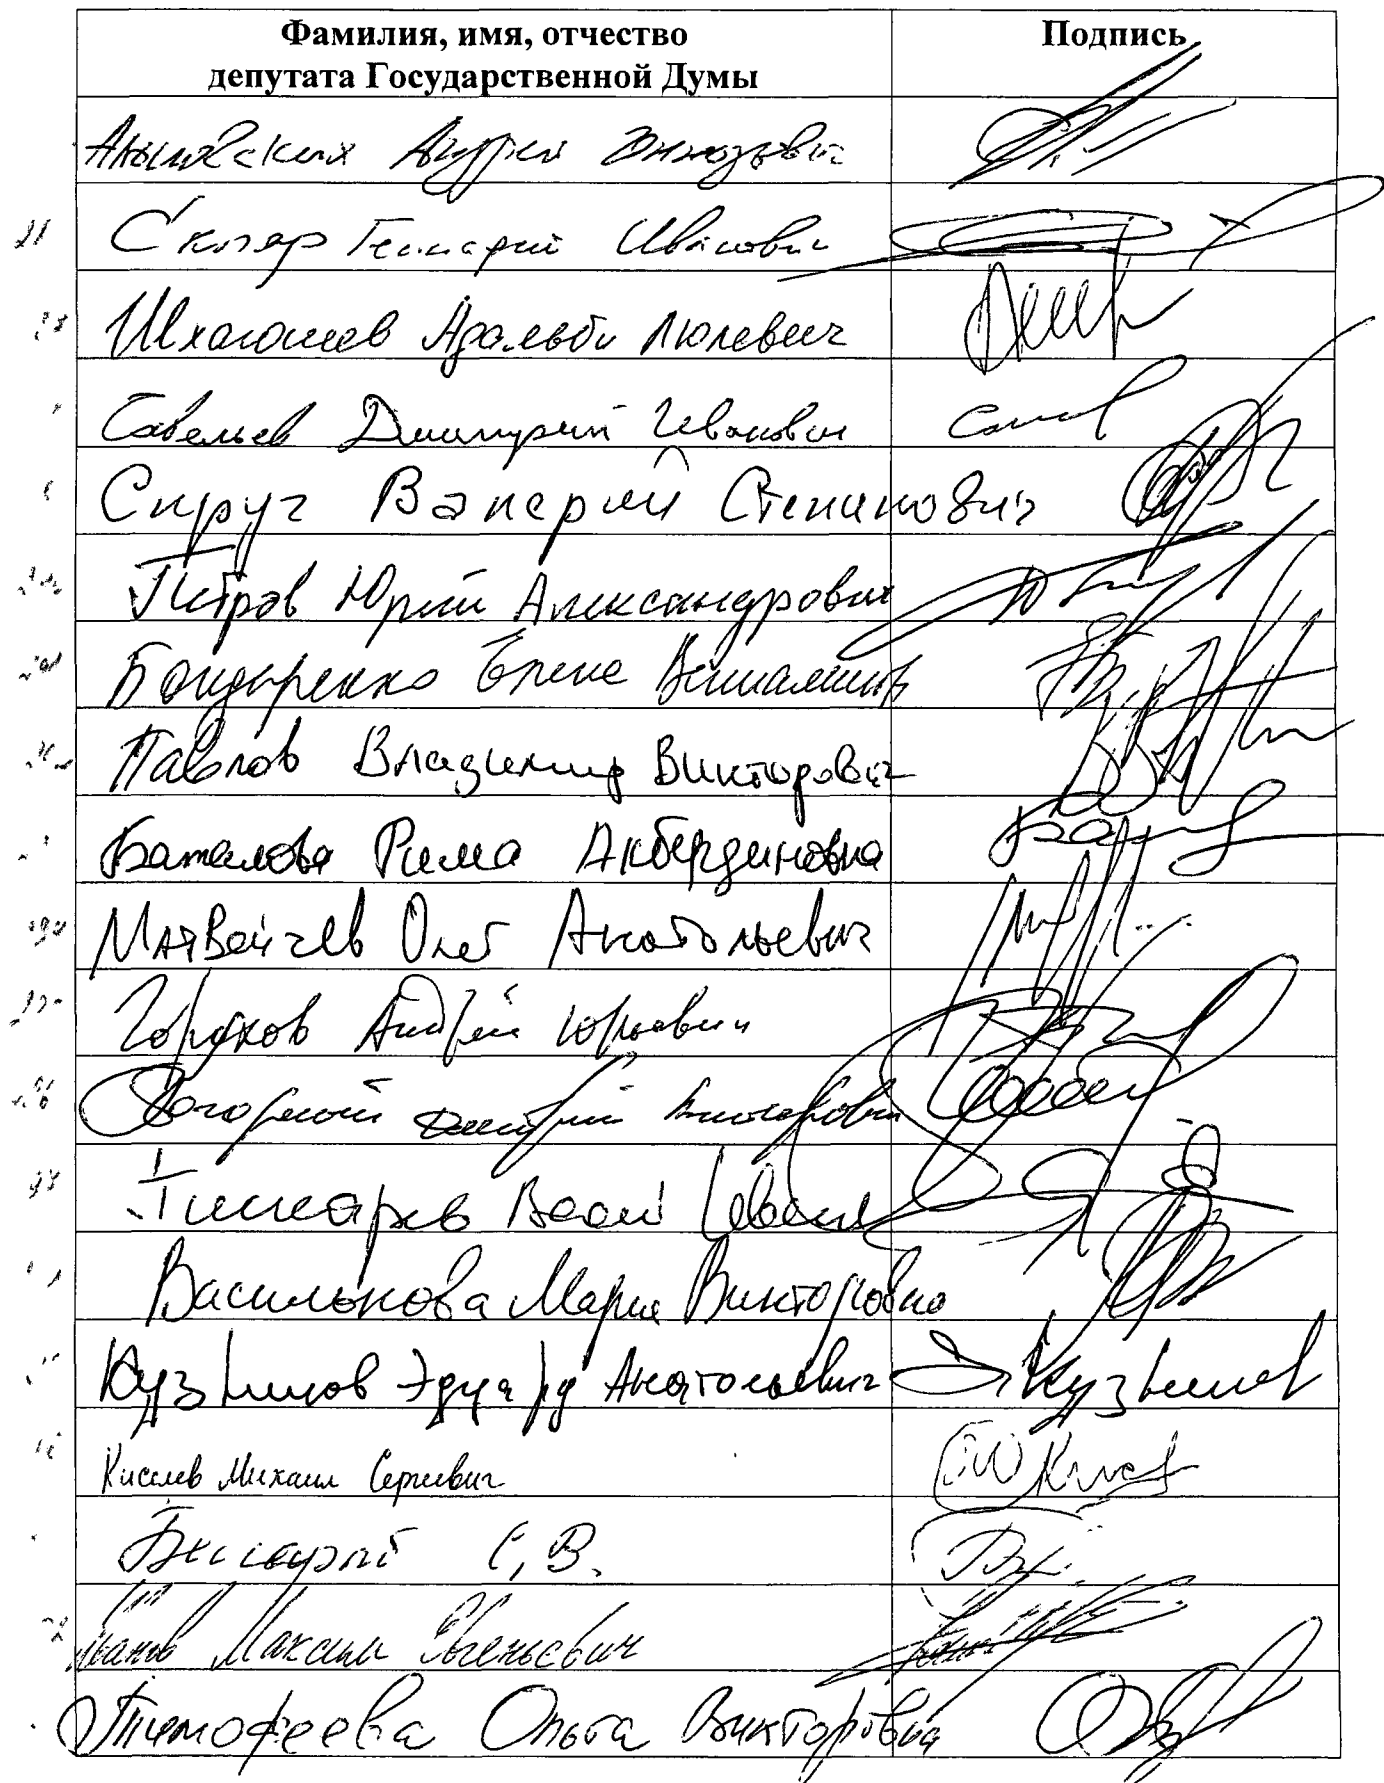 Фамилия, имя, отчество
депутата Государственной Думы
Подпись
Андрей
Скляр Геннадий Иванович
Шхагошев Адальби Люлевич
Савельев Дмитрий Иванович
Скруг Валерий Степанович
Петров Юрий Александрович
Бондаренко Елена Вениаминов
Павлов Владимир Викторович
Баталова Рима Акбердиновна
Матвейчев Олег Анатольевич
Горохов Андрей Юрьевич
Погорелый Дмитрий Викторович
Пискарев Василий Иванов
Василькова Мария Викторовна
Кузнецов Эдуард Анатольевич
Киселев Михаил Сергеевич
С.В.
Иванов Максим Евгеньевич
Тимофеева Ольга Викторовна